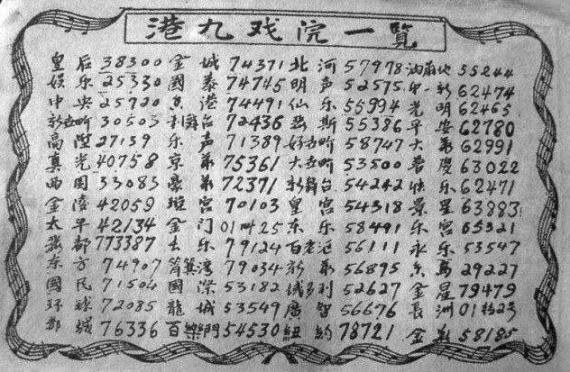 港九戏院一覧
皇后 38300 金城 74371 北河 57978 油麻地 55244
娱乐 25330 國泰 74745 明声 52575 62474
中央 25720 香港 74491 仙乐 55994 光明 62465
30503 利舞台 72436 55386 平安 62780
高陞 27139 乐声 71389 好世界 58747 大華 62991
真光 40758 京華 75361 大世界 53500 普慶 63022
西園 33083 豪華 72371 新舞台 54242 快乐 62471
金陵 42059 70103 皇宮 54318 景星 63883
太平 42134 金门 01叫25 东乐 58491 乐宮 65321
都 773387 大乐 79124 百老汇 56111 永乐 53547
东方 74907 筲箕湾 79034 新華 56895 29227
國民 71504 國際 53182 域多利 52627 金星 79479
环球 72085 龍城 53549 廣智 56676 長洲
都城 76336 百樂門 54530 紐約 78721 金華 58185